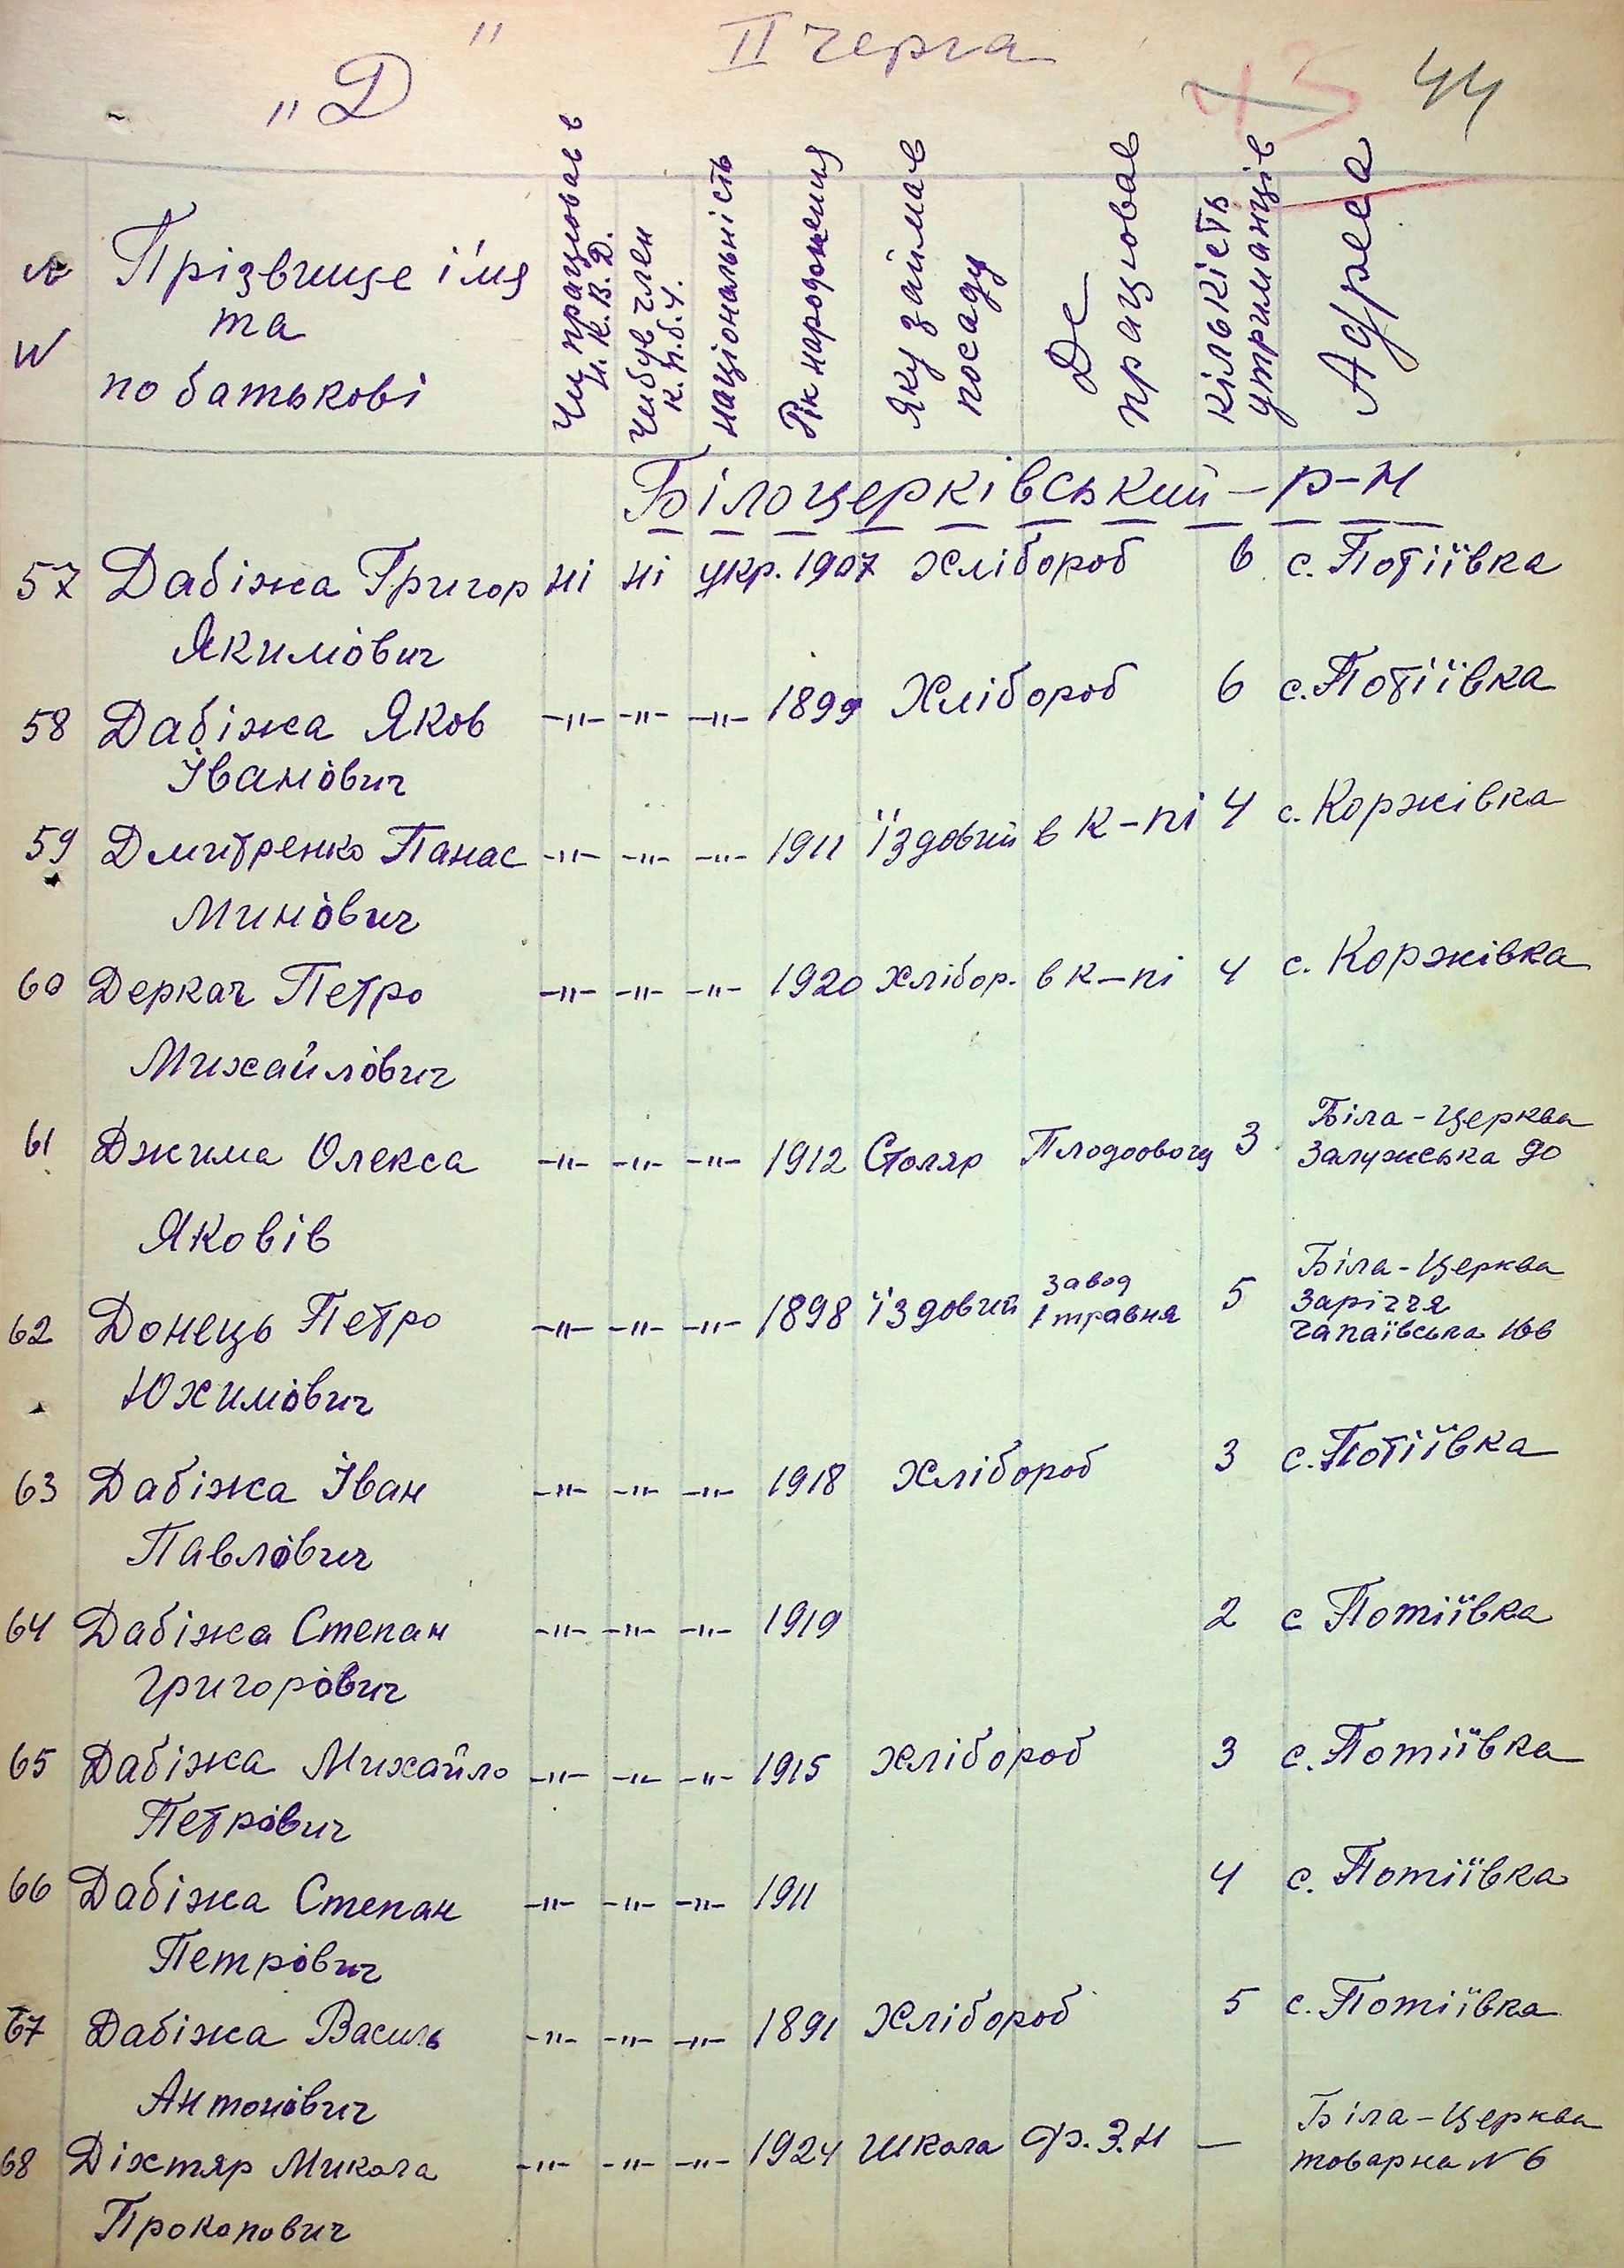 II черга
„Д"
43 44
№№ Прізвище ім'я та по батькові
Чи працював в Н.К.В.Д.
Чи був член К.П.б.У.
Національність
Рік народження
Яку займав посаду
Де працював
Кількість утриманців
Адреса
Білоцерківський – р-н
57 Дабіжа Григор ні ні укр. 1907 Хлібороб 6 с. Потіївка
Якимович
58 Дабіжа Яков -"- -"- -"- 1899 Хлібороб 6 с. Потіївка
Іванович
59 Дмитренко Панас -"- -"- -"- 1911 Їздовий в к-пі 4 с. Коржівка
Минович
60 Деркач Петро -"- -"- -"- 1920 Хлібор. в к-пі 4 с. Коржівка
Михайлович
61 Джима Олекса -"- -"- -"- 1912 Столяр Плодоовочу 3 Біла-Церква Залужська 90
Яковів
62 Донець Петро -"- -"- -"- 1898 Їздовий завод 1 травня 5 Біла-Церква Заріччя Чапаївська 166
Юхимович
63 Дабіжа Іван -"- -"- -"- 1918 Хлібороб 3 с. Потіївка
Павлович
64 Дабіжа Степан -"- -"- -"- 1919 2 с Потіївка
Григорович
65 Дабіжа Михайло -"- -"- -"- 1915 Хлібороб 3 с. Потіївка
Петрович
66 Дабіжа Степан -"- -"- -"- 1911 4 с. Потіївка
Петрович
67 Дабіжа Василь -"- -"- -"- 1891 Хлібороб 5 с. Потіївка
Антонович
68 Діхтяр Микола -"- -"- -"- 1924 Школа Ф.З.Н — Біла-Церква товарна N 6
Прокопович